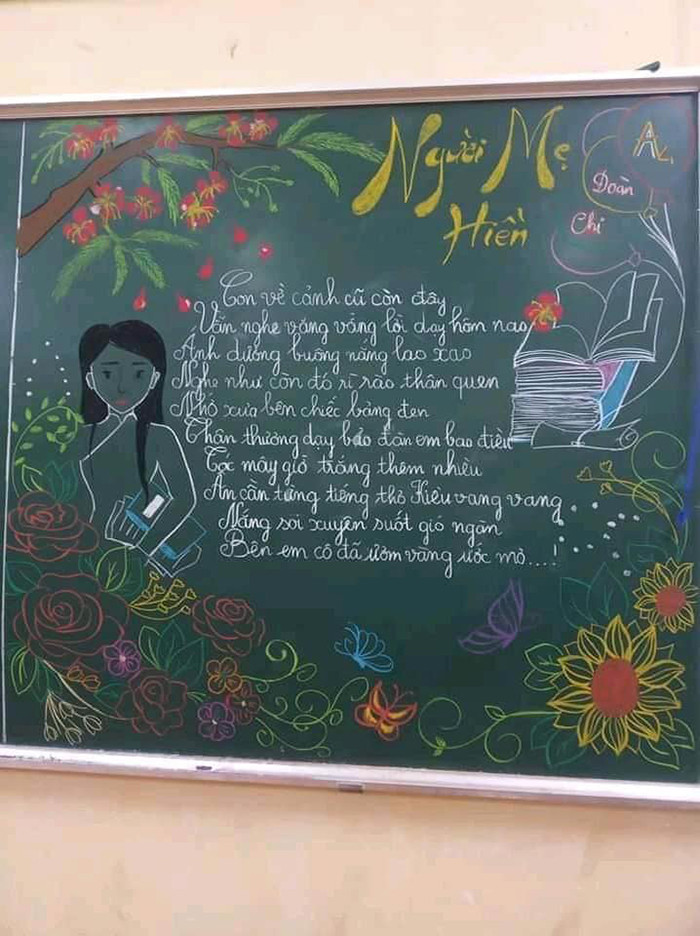 Người Mẹ
Hiền
A4
Đoàn
Chi
Con về cảnh cũ còn đây
Vẫn nghe văng vẳng lời dạy hôm nao
Ánh dương buông nắng lao xao
Nghe như còn đó rì rào thân quen
Nhớ xưa bên chiếc bảng đen
Thân thương dạy bảo đàn em bao điều
Tóc mây giờ trắng thêm nhiều
Ân cần từng tiếng thơ Kiều vang vang
Nắng soi xuyên suốt gió ngàn
Bên em cô đã ươm vàng ước mơ...!